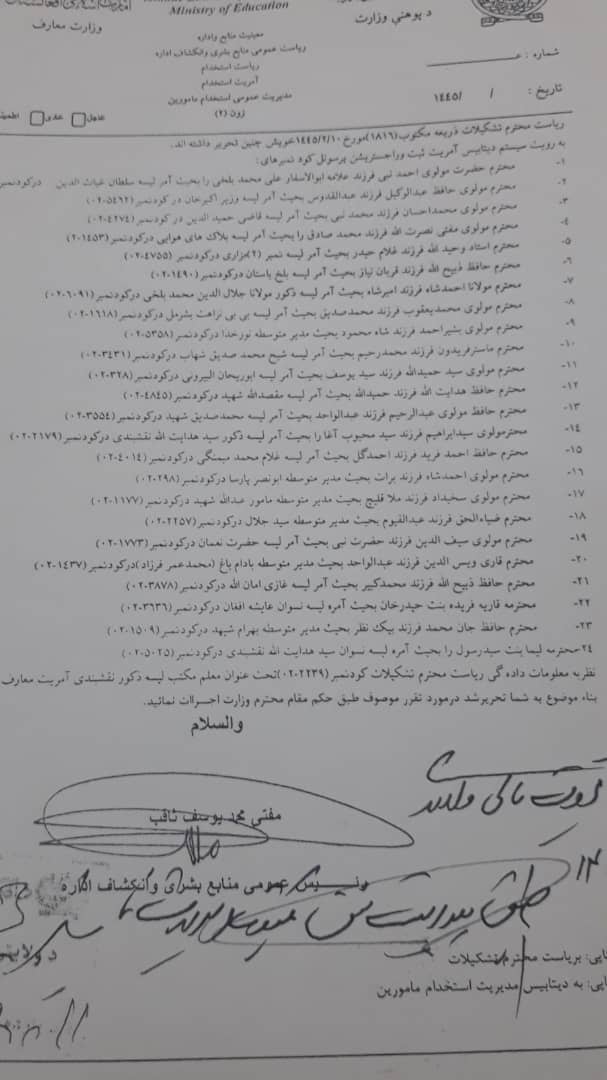 Ministry of Education
د پوهنې وزارت
وزارت معارف
معینیت منابع واداره
ریاست عمومی منابع بشری وانکشاف اداره
ریاست استخدام
آمریت استخدام
مدیریت عمومی استخدام مامورین
زون (۲)
شماره :
تاریخ : / /۱۴۴۵
عاجل عادی
ریاست محترم تشکیلات ذریعه مکتوب (۱۸۱۶)مورخ ۱۴۴۵/۲/۱۰خویش چنین تحریر داشته اند.
به رویت سیستم دیتابیس آمریت ثبت وراجستریشن پرسونل کود نمبرهای:
۱- محترم حضرت مولوی احمد نبی فرزند علامه ابوالاسفار علی محمد بلخی را بحیث آمر لیسه سلطان غیاث الدین درکودنمبر
۲- محترم مولوی حافظ عبدالوکیل فرزند عبدالقدوس بحیث آمر لیسه وزیر اکبرخان در کودنمبر (۵۴۶۲-۰۲)
۳- محترم مولوی محمداحسان فرزند محمد نبی بحیث آمر لیسه قاضی حمید الدین در کودنمبر (۴۲۷۴-۰۲)
۴- محترم مولوی مفتی نصرت الله فرزند محمد صادق را بحیث آمر لیسه بلاک های هوایی درکودنمبر (۱۴۵۳-۲)
۵- محترم استاد وحید الله فرزند غلام حیدر بحیث آمر لیسه نمبر (۲)مزاری درکودنمبر (۴۷۵۵-۰۲)
۶- محترم حافظ ذبیح الله فرزند قربان نیاز بحیث آمر لیسه بلخ باستان درکودنمبر (۱۴۹۰-۰۲)
۷- محترم مولانا احمدشاه فرزند امیرشاه بحیث آمر لیسه ذکور مولانا جلال الدین محمد بلخی درکودنمبر (۶۰۹۱-۰۲)
۸- محترم مولوی محمدیعقوب فرزند محمدصدیق بحیث آمر لیسه بی بی نزاهت بشرمل درکودنمبر (۱۶۱۸-۰۲)
۹- محترم مولوی بشیراحمد فرزند شاه محمود بحیث مدیر متوسطه نورخدا درکودنمبر (۵۳۵۸-۰۲)
۱۰- محترم ماسترفریدون فرزند محمدرحیم بحیث آمر لیسه شیخ محمد صدیق شهاب درکودنمبر (۳۴۳۱-۰۲)
۱۱- محترم مولوی سید حمیدالله فرزند سید یوسف بحیث آمر لیسه ابوریحان البیرونی درکودنمبر (۳۲۸-۰۲)
۱۲- محترم حافظ هدایت الله فرزند حمیدالله بحیث آمر لیسه مقصدالله شهید درکودنمبر (۴۸۴۵-۰۲)
۱۳- محترم حافظ مولوی عبدالرحیم فرزند عبدالواحد بحیث آمر لیسه محمدصدیق شهید درکودنمبر (۳۵۵۴-۰۲)
۱۴- محترم مولوی سیدابراهیم فرزند سید محبوب آغا را بحیث آمر لیسه ذکور سید هدایت الله نقشبندی درکودنمبر (۲۱۷۹-۰۲)
۱۵- محترم حافظ احمد فرید فرزند احمدگل بحیث آمر لیسه غلام محمد میمنگی درکودنمبر (۴۰۱۴-۰۲)
۱۶- محترم مولوی احمدشاه فرزند برات بحیث مدیر متوسطه ابونصر پارسا درکودنمبر (۲۹۸-۰۲)
۱۷- محترم مولوی سخیداد فرزند ملا قلیچ بحیث مدیر متوسطه مامور عبدالله شهید درکودنمبر (۱۱۷۷-۰۲)
۱۸- محترم ضیاءالحق فرزند عبدالقیوم بحیث مدیر متوسطه سید جلال درکودنمبر (۲۲۵۷-۰۲)
۱۹- محترم مولوی سیف الدین فرزند حضرت نبی بحیث آمر لیسه حضرت نعمان درکودنمبر (۱۷۷۳-۰۲)
۲۰- محترم قاری ویس الدین فرزند عبدالواحد بحیث مدیر متوسطه بادام باغ (محمدعمر فرزاد)درکودنمبر (۱۴۳۷-۰۲)
۲۱- محترم حافظ ذبیح الله فرزند محمدکبیر بحیث آمر لیسه غازی امان الله درکودنمبر (۳۸۷۸-۰۲)
۲۲- محترمه قاریه فریده بنت حیدرخان بحیث آمره لیسه نسوان عایشه افغان درکودنمبر (۳۶۳۶-۰۲)
۲۳- محترم حافظ جان محمد فرزند بیک نظر بحیث مدیر متوسطه بهرام شهید درکودنمبر (۱۵۰۹-۰۲)
۲۴ محترمه لیما بنت سیدرسول را بحیث آمره لیسه نسوان سید هدایت الله نقشبندی درکودنمبر (۵۰۲۵-۰۲)
نظر به معلومات داده گی ریاست محترم تشکیلات کودنمبر (۲۲۳۹-۰۲)تحت عنوان معلم مکتب لیسه ذکور نقشبندی آمریت معارف
بناء موضوع به شما تحریرشد درمورد تقرر موصوف طبق حکم مقام محترم وزارت اجراات نمائید.
والسلام
مفتی محمد یوسف ثاقب
رئیس عمومی منابع بشری وانکشاف اداره
بریاست محترم تشکیلات
به دیتابیس مدیریت استخدام مامورین